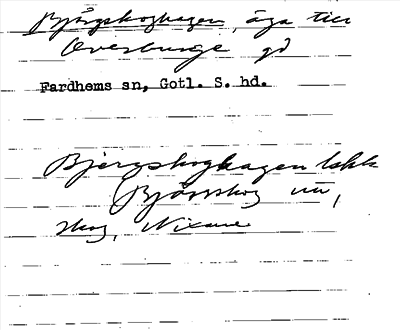 Bjärgskoghagen, äga till
Overburge gd
Fardhems sn, Gotl. S. hd.
Bjergskoghagen
(Björskog nu,
skog, Nixarve